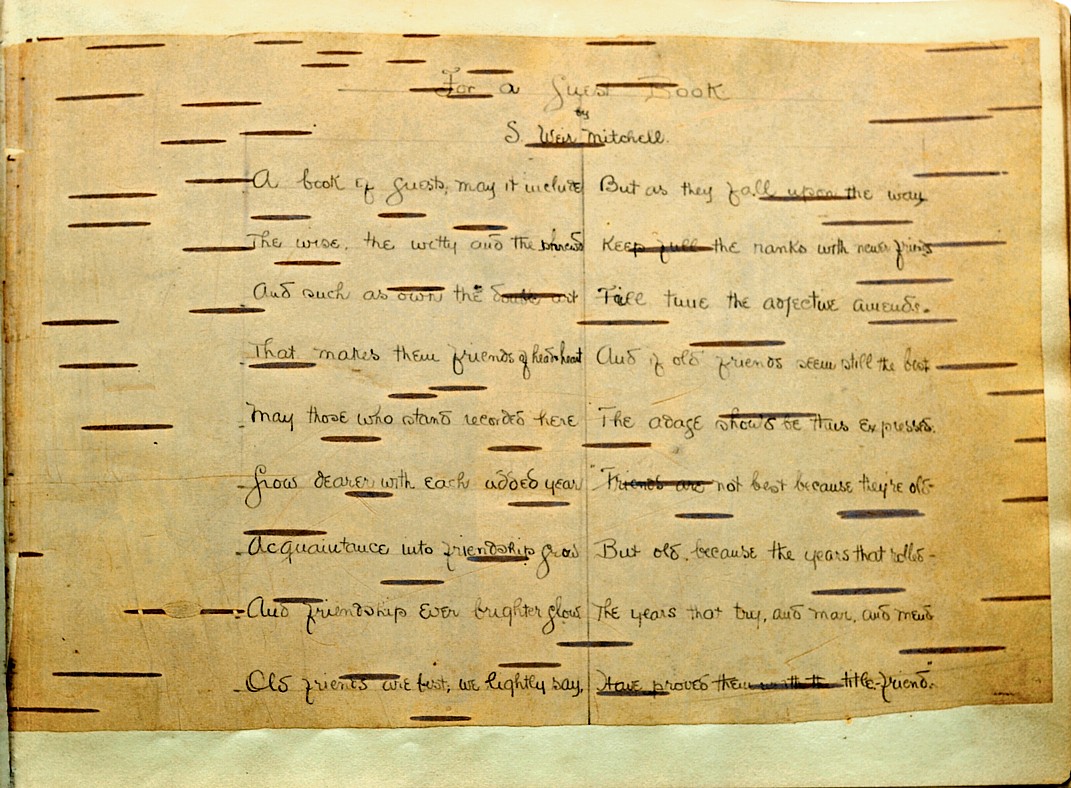 For a Guest Book
by
S. Weir Mitchell.
A book of guests; may it include
The wise, the witty and the shrewd
And such as own the double art
That makes them friends of head & heart
May those who stand recorded here
Grow dearer with each added year
Acquaintance into friendship grow
And friendship ever brighter glow
Old friends are best, we lightly say,
But as they fall upon the way
Keep full the ranks with newer friends
Till time the adjective amends.
And if old friends seem still the best
The adage show'd be thus expressed.
"Friends are not best because they're old-
But old, because the years that rolled-
The years that try, and mar, and mend
Have proved them worth the title-friend."